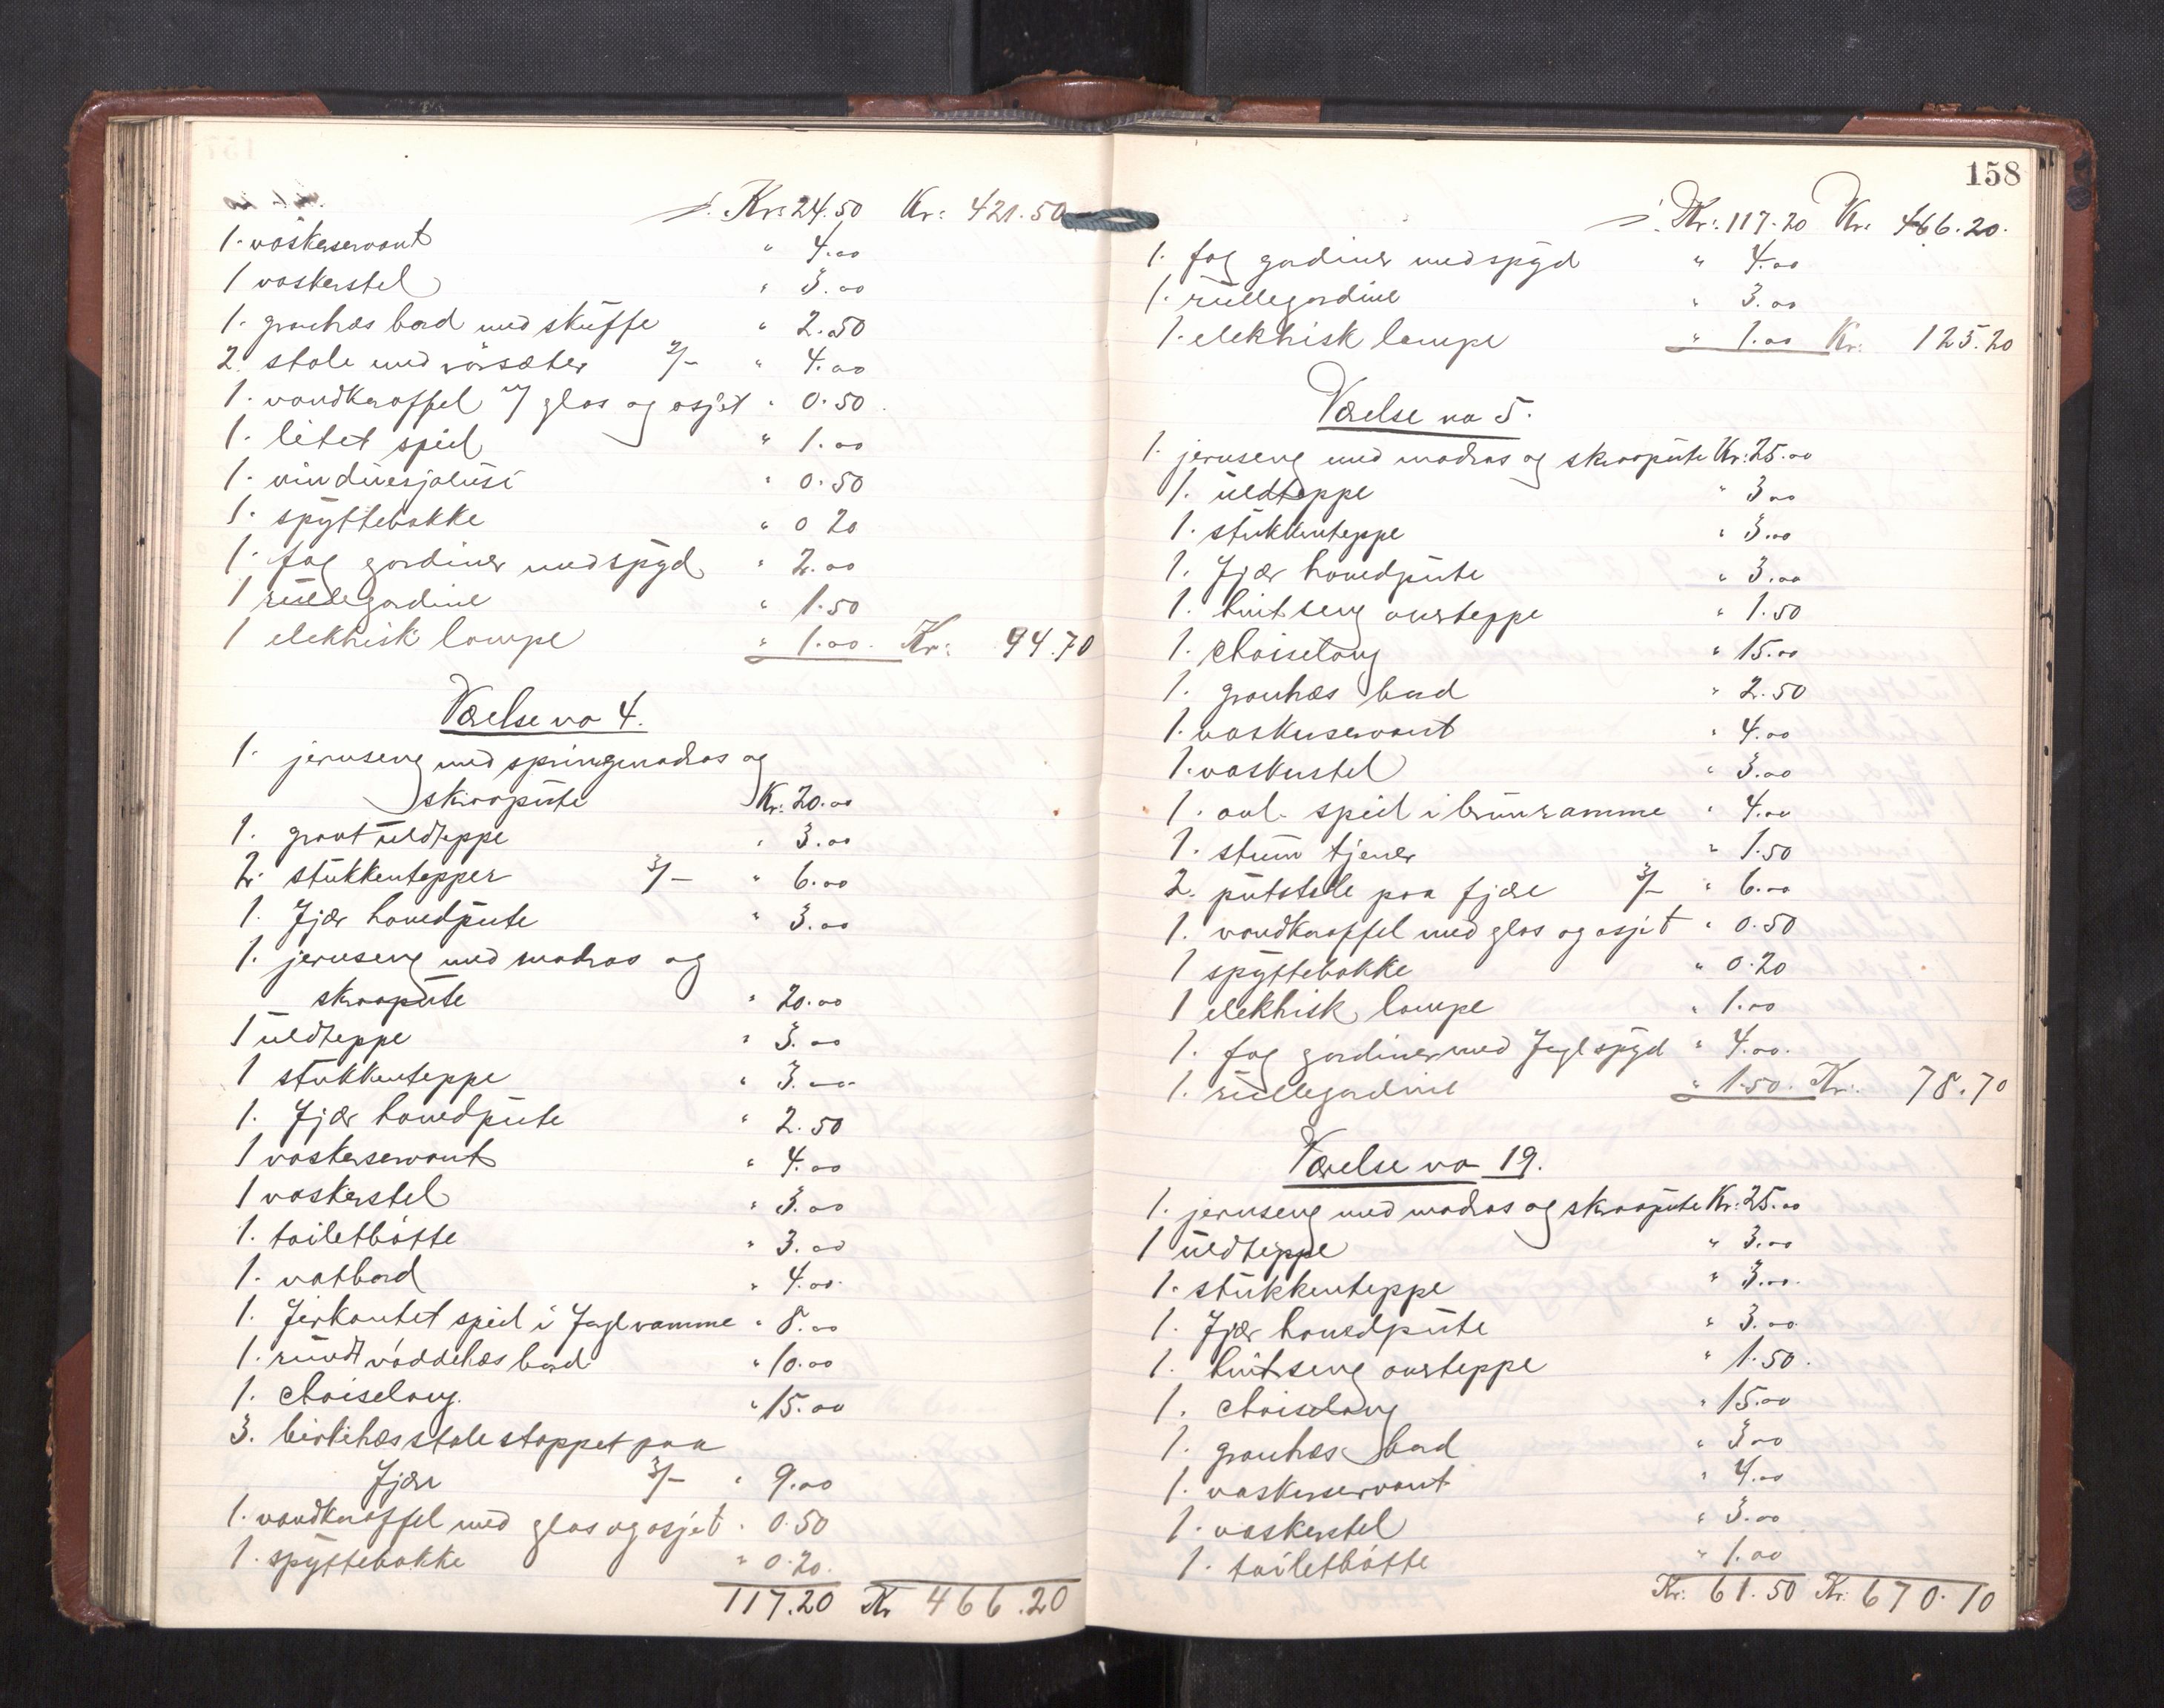 Kr: 24.50 Kr: 421.50
1. vaskeservant " 4.00
1 vaskestel " 3.00
1. granhæs bord med skuffe " 2.50
2. stole med rörsæter 2/- " 4.00
1. vandkaraffel m/ glas og asjet " 0.50
1. litet speil " 1.00
1. vinduesjalusi " 0.50
1. spyttebakke " 0 20
1. fag gardiner med spyd " 2.00
1 rullegardine " 1.50
1 elektrisk lampe " 1.00. Kr: 44.70
Værelse no 4.
1. jernseng med springmadras og
skraapute Kr: 20.00
1. graat uldteppe " 3.00
2. stukkentepper 3/- " 6.00
1. Fjær hovedpute " 3.00
1. jernseng med madras og
skraapute " 20.00
1 uldteppe " 3.00
1 stukkenteppe " 3.00
1. Fjær hovedpute " 2.50
1 vaskeservant " 4.00
1 vaskestel " 3.00
1. toiletbötte " 3.00
1. natbord " 4.00
1. Firkantet speil i Fuglramme " 8.00
1. rundt röddehæs bord " 10.00
1. Chaiselong. " 15.00
3. birkehæs stole stoppet paa
Fjær 3/- " 9.00
1. vandkaraffel med glas og asjet " 0.50
1. spyttebakke " 0.20.
117.20 Kr 466.20
158
Kr: 117.20 Kr. 466.20.
1. fag gardiner med spyd " 4.00
1. rullegardine " 3.00
1. elektrisk lampe " 1.00 Kr: 125.20
Værelse no 5.
1. jernseng med madras og skraapute Kr: 25.00
1. uldteppe " 3 00
1. stukkenteppe " 3.00
1. Fjær hovedpute " 3.00
1. hvit seng overteppe " 1.50
1. Chaiselong " 15.00
1. granhæs bord " 2.50
1. vaskeservant " 4.00
1. vaskestel " 3.00
1. oval speil i brun ramme " 4.00
1. stum tjener " 1.50
2. putstole paa fjære 3/- " 6.00
1. vandkaraffel med glas og asjet " 0.50
1 spyttebakke " 0.20
1 elektrisk lampe " 1.00
1. fag gardiner med Fugl spyd " 4.00.
1. rullegardine " 1.50. Kr: 78.70
Værelse no 19.
1. jernseng med madras og skraapute Kr: 25.00
1 uldteppe " 3.00
1. stukkenteppe " 3.00.
1. Fjær hovedpute " 3.00
1. hvit seng overteppe " 1.50.
1. Chaiselong " 15.00
1. granhæs bord " 3 00
1. vaskeservant " 4.00
1. vaskestel " 3.00
1. toiletbötte " 1.00
Kr: 61.50 Kr: 670.10